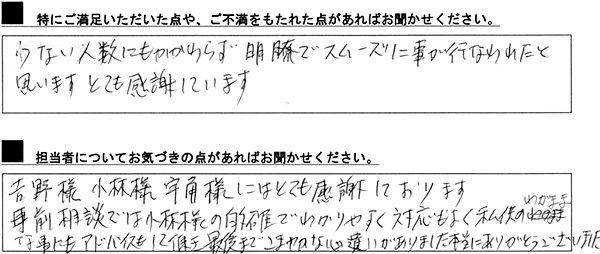 特にご満足いただいた点や、ご不満をもたれた点があればお聞かせください。
少ない人数にもかかわらず明瞭でスムーズに事が行なわれたと
思います とても感謝しています
担当者についてお気づきの点があればお聞かせください。
吉野様 小林様 宇角様にはとても感謝しております
事前相談では小林様の的確でわかりやすく対応もよく私供のわがまま
な事にもアドバイスもして頂き最後までこまやかな心遣いがありました本当にありがとうございました